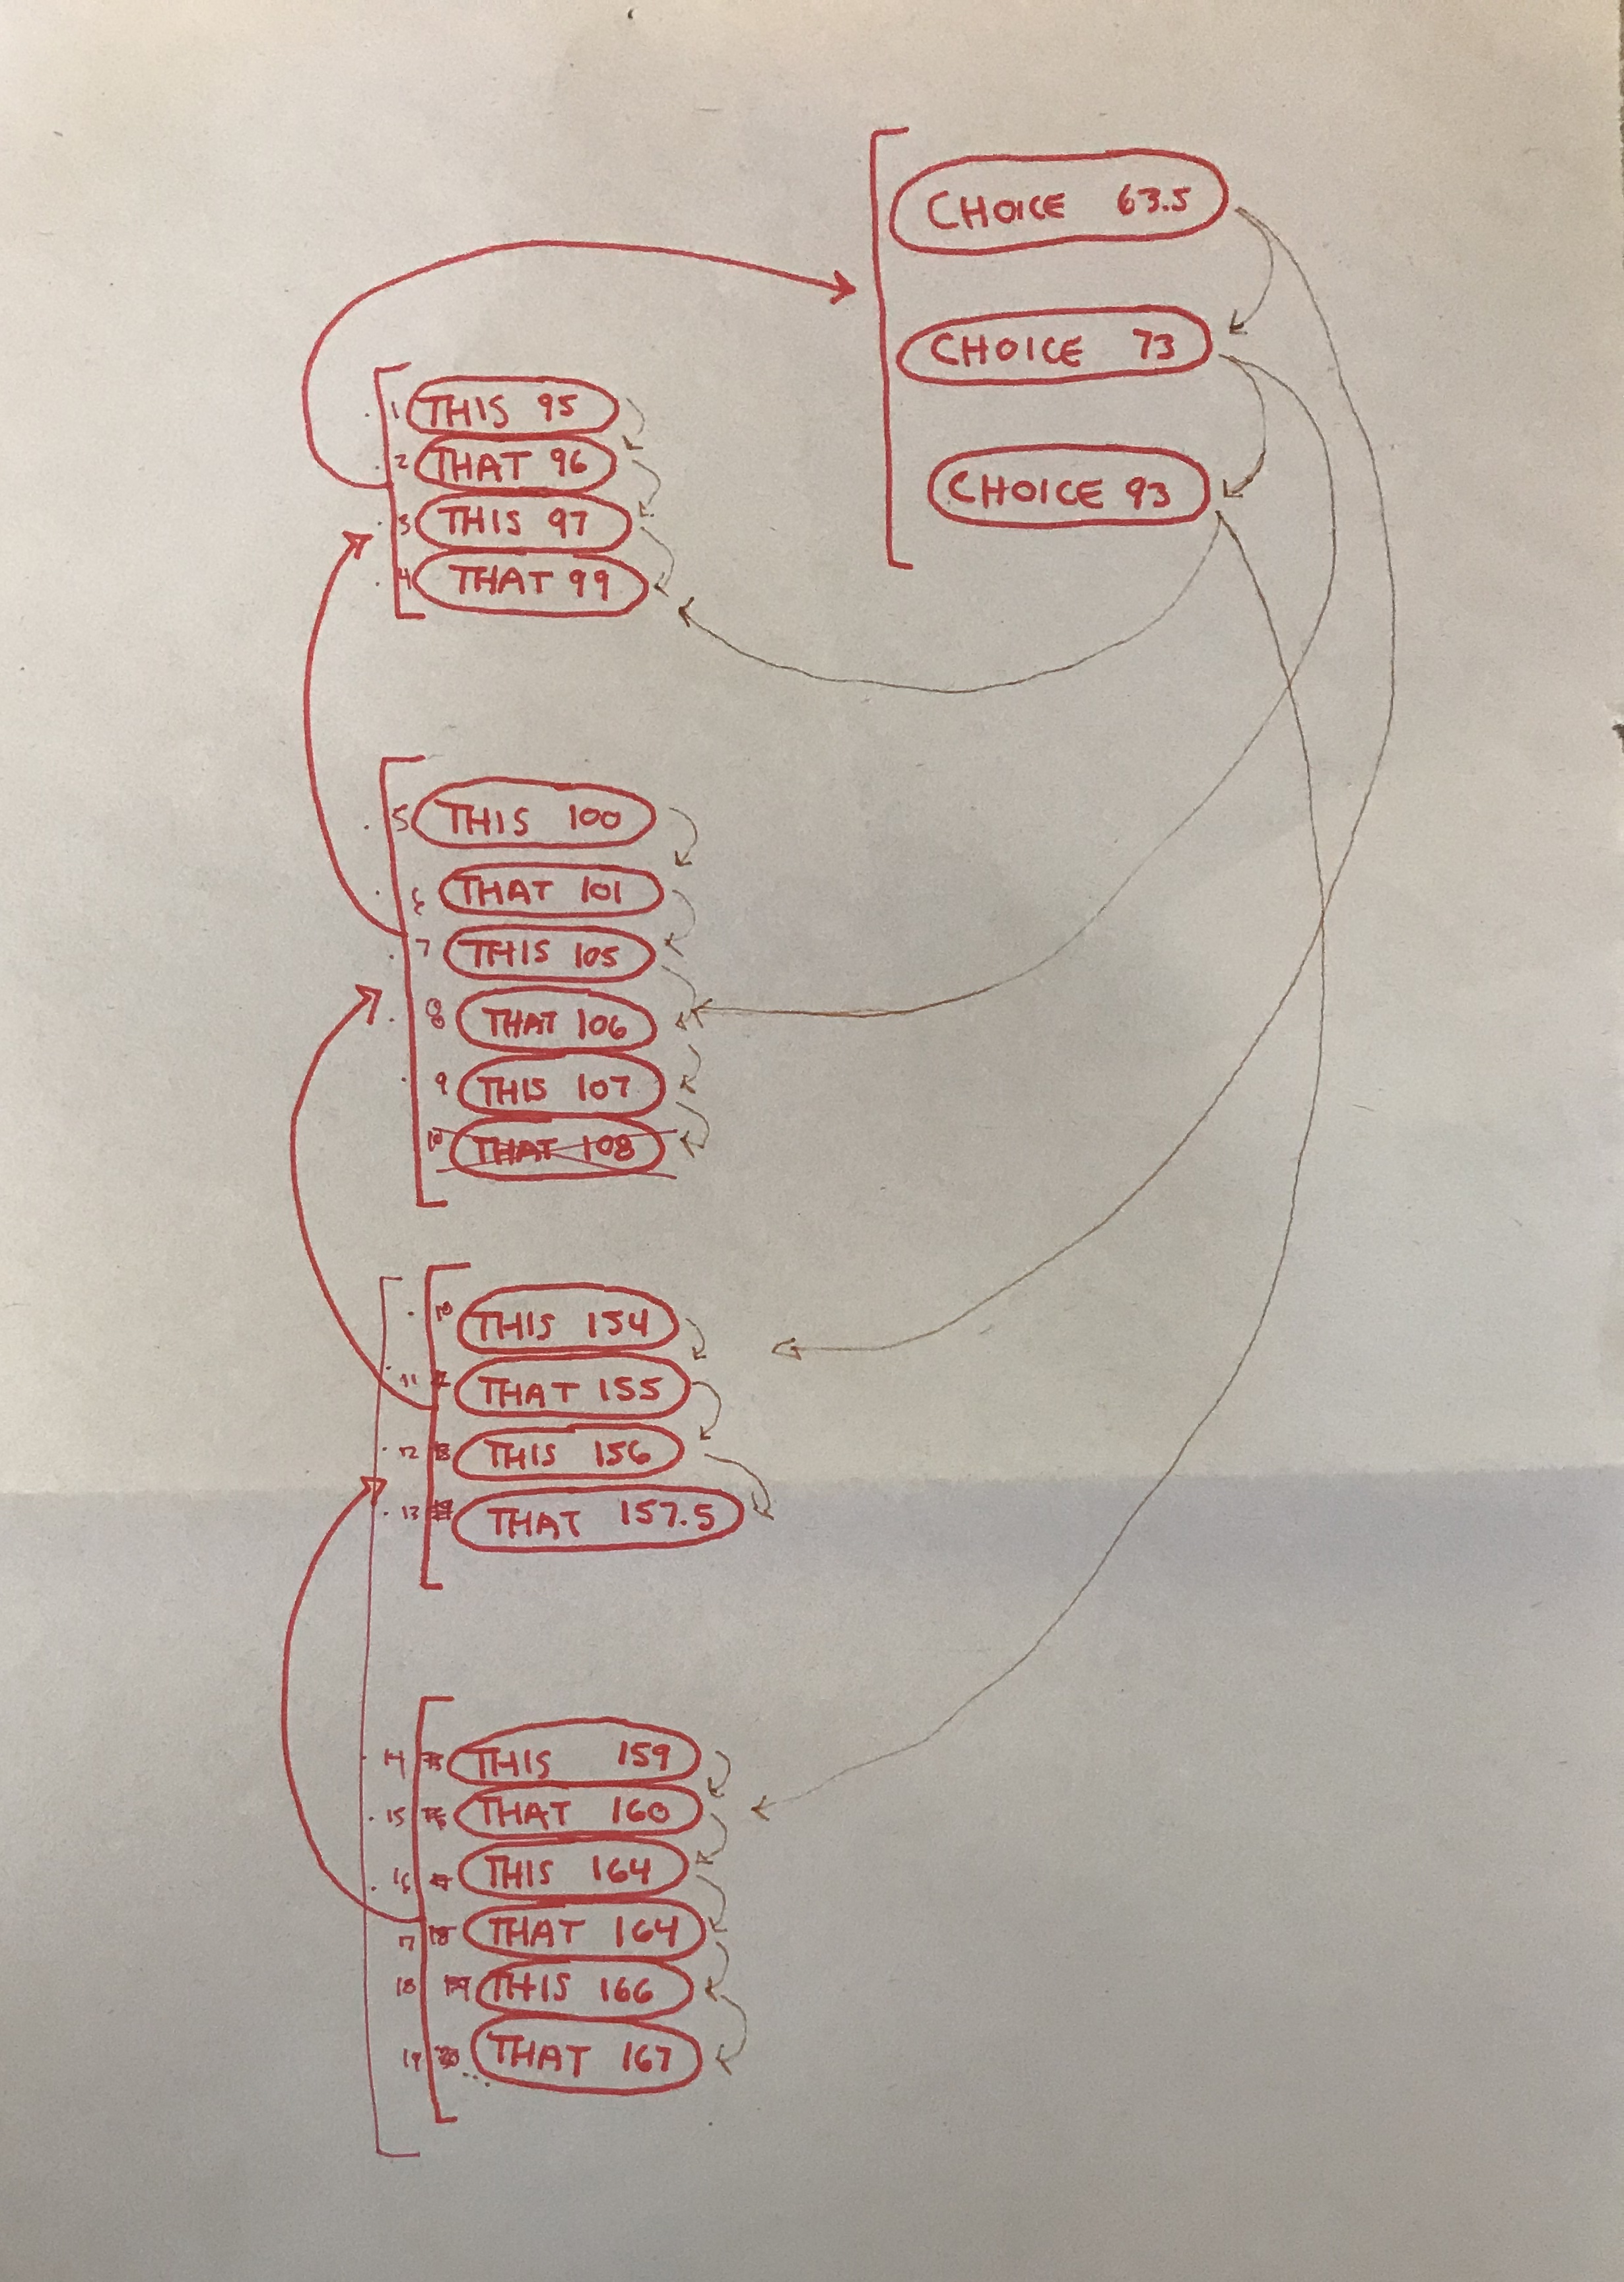 CHOICE 63.5
CHOICE 73
CHOICE 93
1 THIS 95
2 THAT 96
3 THIS 97
4 THAT 99
5 THIS 100
6 THAT 101
7 THIS 105
8 THAT 106
9 THIS 107
10 THAT 108
10 THIS 154
11 THAT 155
12 THIS 156
13 THAT 157.5
14 THIS 159
15 THAT 160
16 THIS 164
17 18 THAT 164
18 THIS 166
19 THAT 167